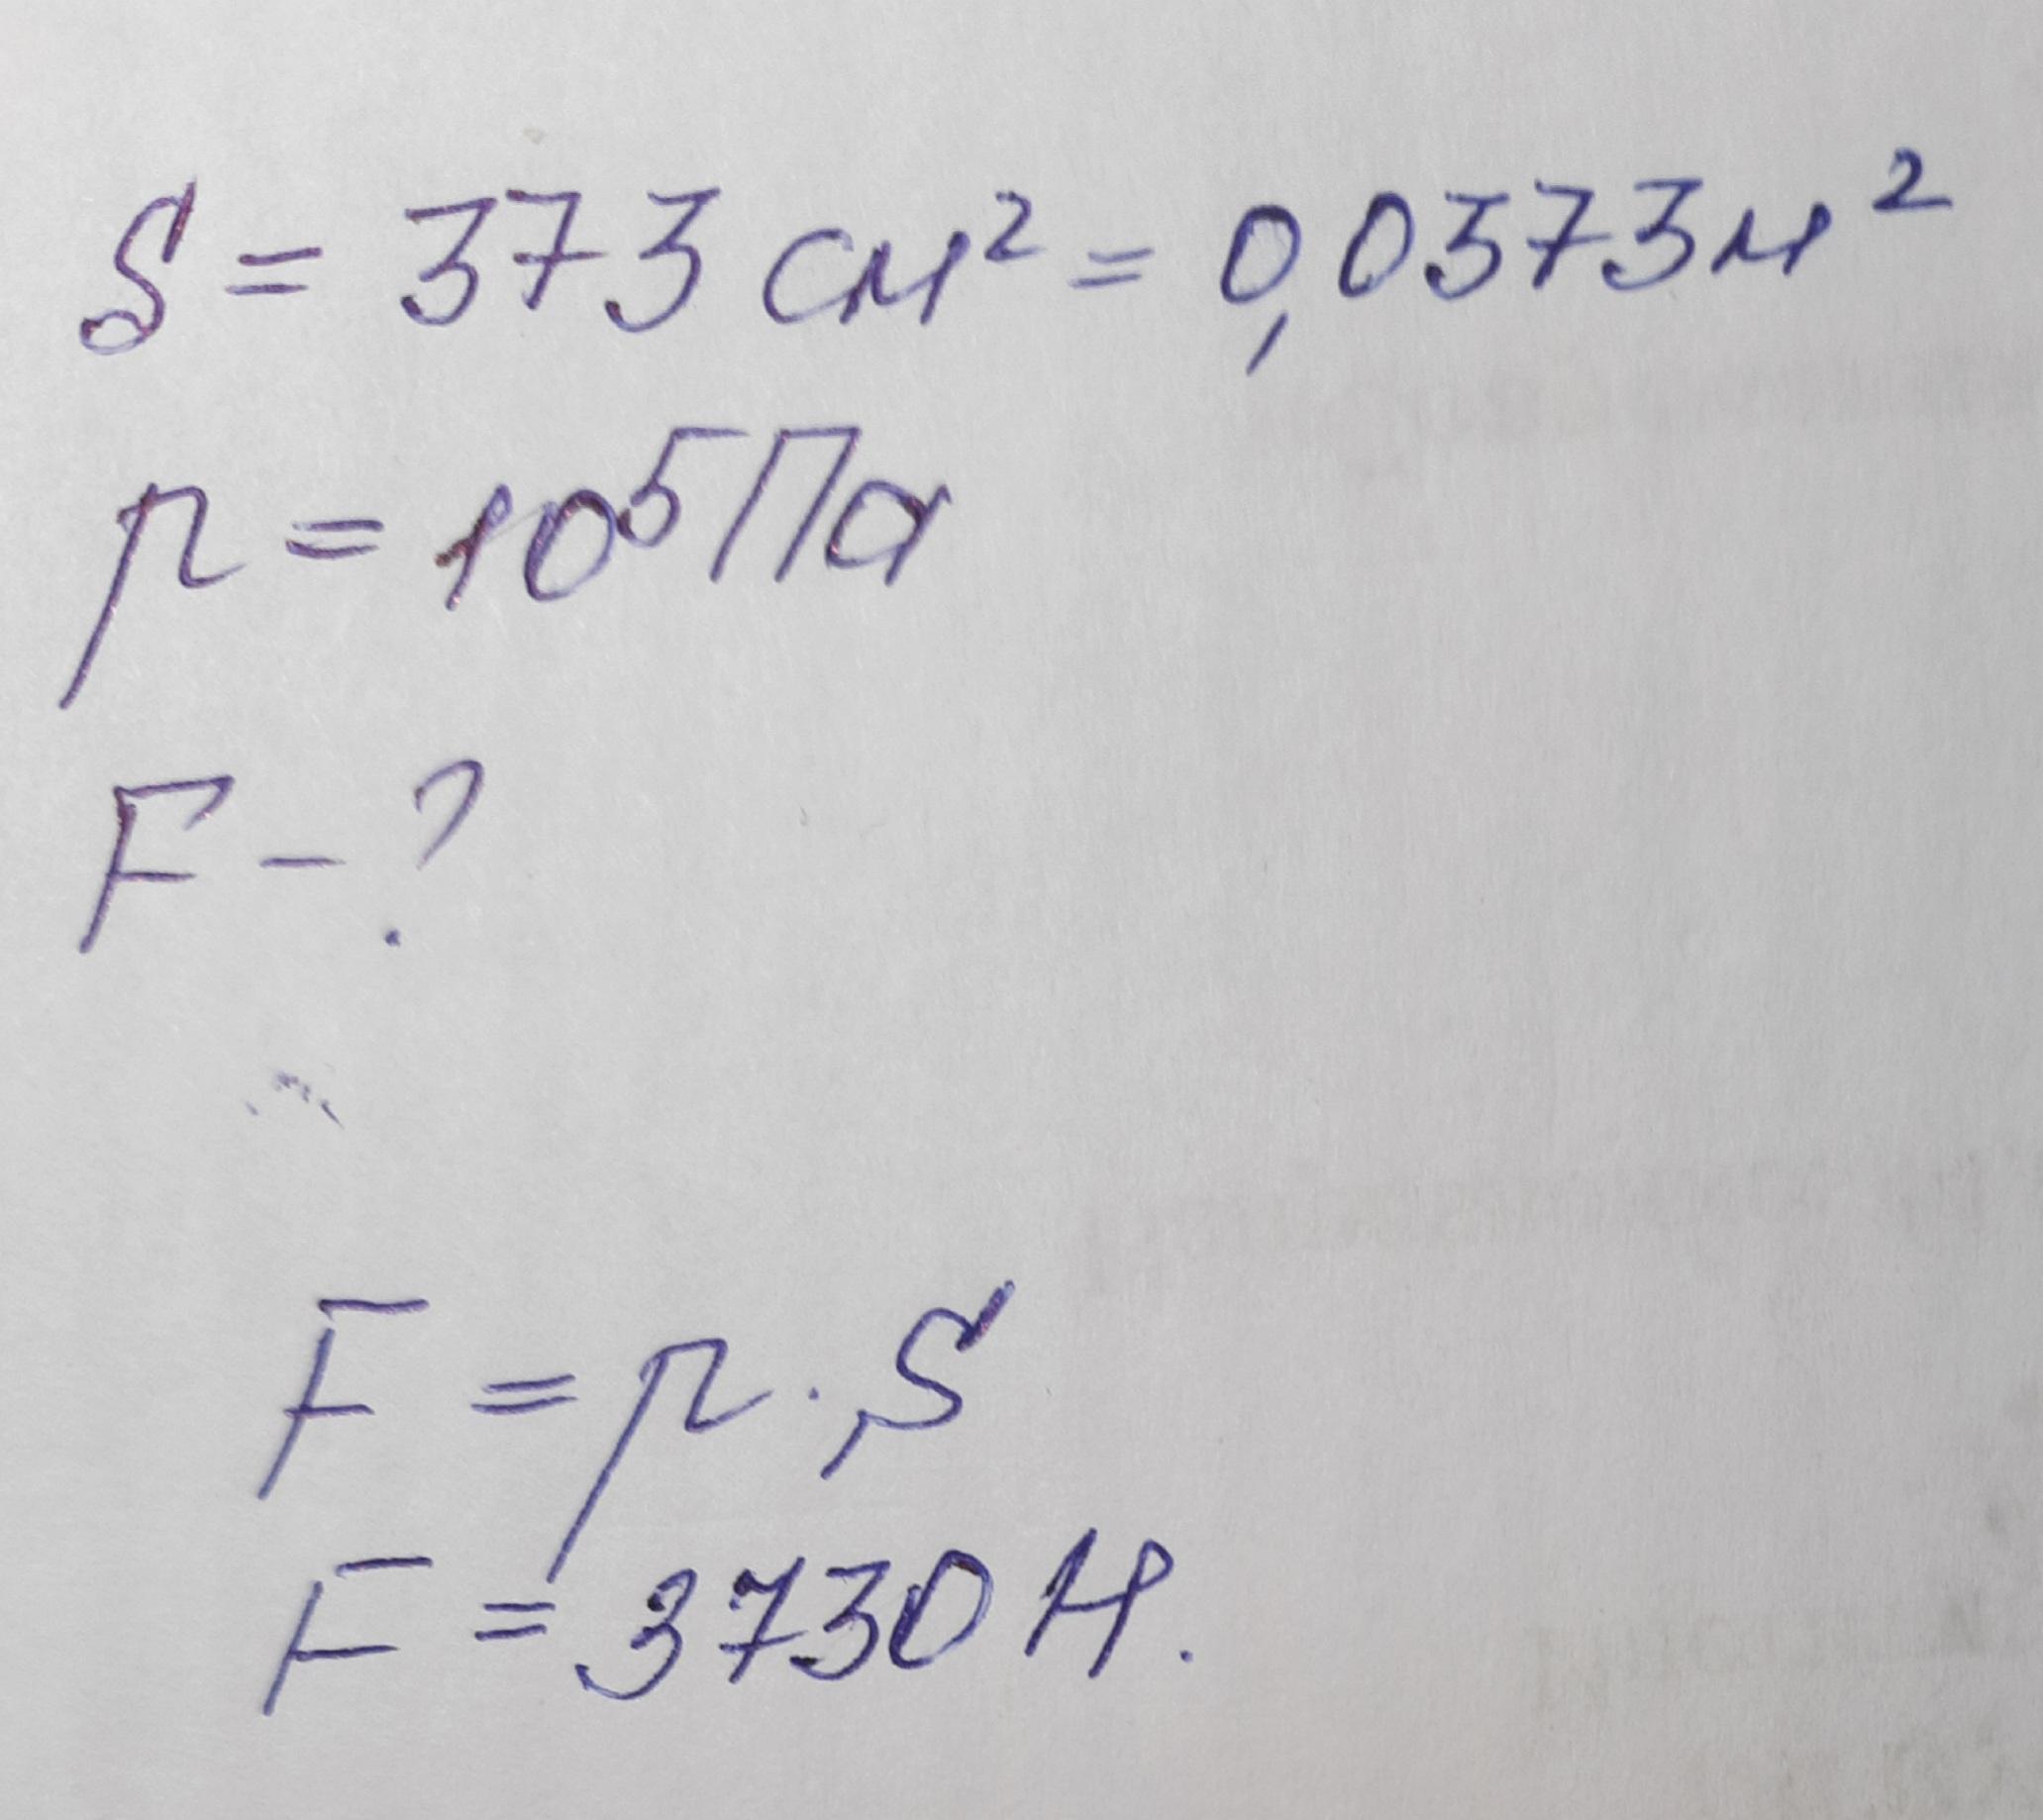 S = 373 см² = 0,0373 м²
p = 10⁵ Па
F - ?
F = p · S
F = 3730 Н.